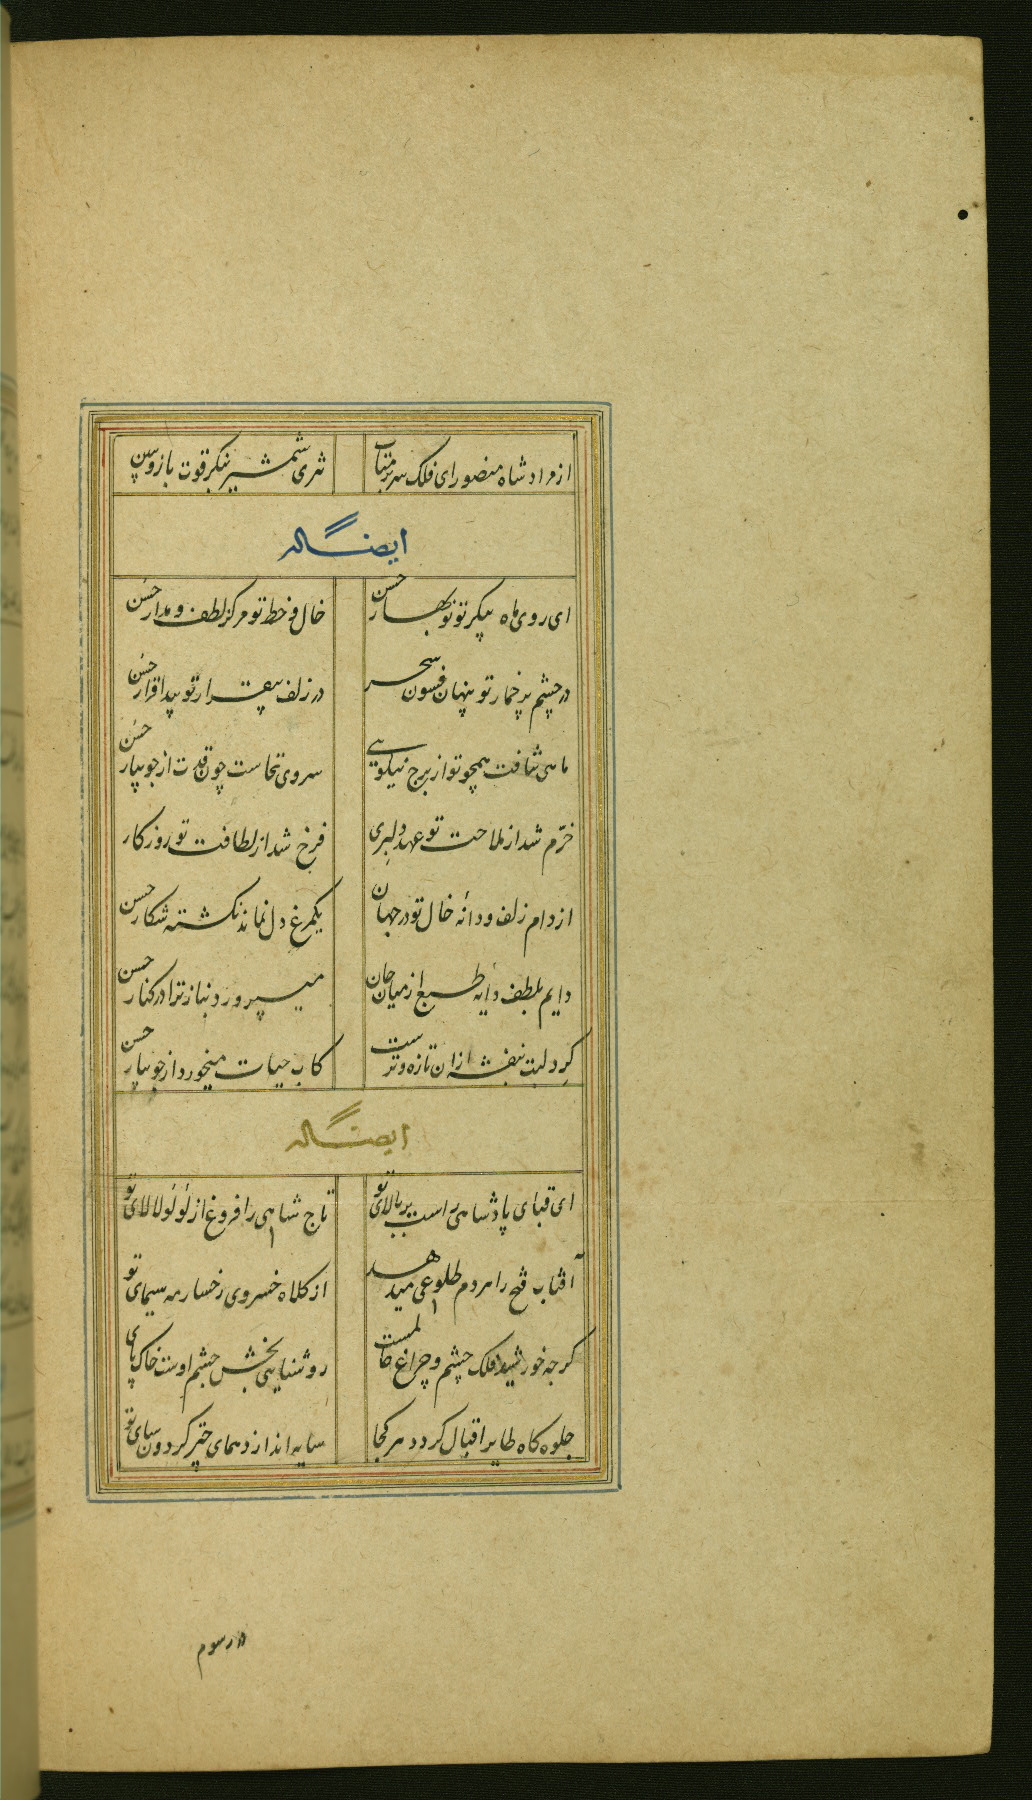 از مراد شاه منصور ای فلک سر بر متاب
تندی شمشیر بنگر قوت بازو ببین
ایضاً له
ای روی ماه پیکر تو نوبهار حسن
خال و خط تو مرکز لطف و مدار حسن
در چشم پر خمار تو پنهان فسون سحر
در زلف بیقرار تو پیدا قرار حسن
ماهی نتافت همچو تو از برج نیکویی
سروی نخاست چون قدت از جویبار حسن
خرّم شد از ملاحت تو عهد دلبری
فرخ شد از لطافت تو روزکار
از دام زلف و دانه خال تو در جهان
یکمرغ دل نماند نکشته شکار حسن
دایم بلطف دایه طبع از میان جان
میپرورد بناز ترا در کنار حسن
کرد لبت بنفشه ازان تازه و ترست
کاب حیات میخورد از جویبار حسن
ایضاً له
ای قبای پادشاهی راست بر بالای تو
تاج شاهی را فروغ از لؤلؤ لالای تو
آفتاب فتح را هر دم طلوعی میدهد
از کلاه خسروی رخسار مه سیمای تو
کرچه خورشید فلک چشم و چراغ عالمست
روشنایی بخش چشم اوست خاک پای
جلوه کاه طایر اقبال کردد هر کجا
سایه اندازد همای چتر کردون سای تو
در رسوم